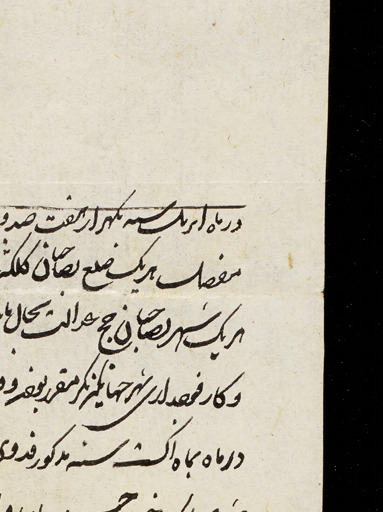 در ماه اپریل سنه یکهزار هفت صد و
مفصلات هر یک ضلع بصاحبان کلکتر
هر یک شهر بصاحبان جج عدالت بحال
و کار فوجداری شهر جهانگیرنگر مقرر بوده و
در ماه بماه اگست سنه مذکور فدوی